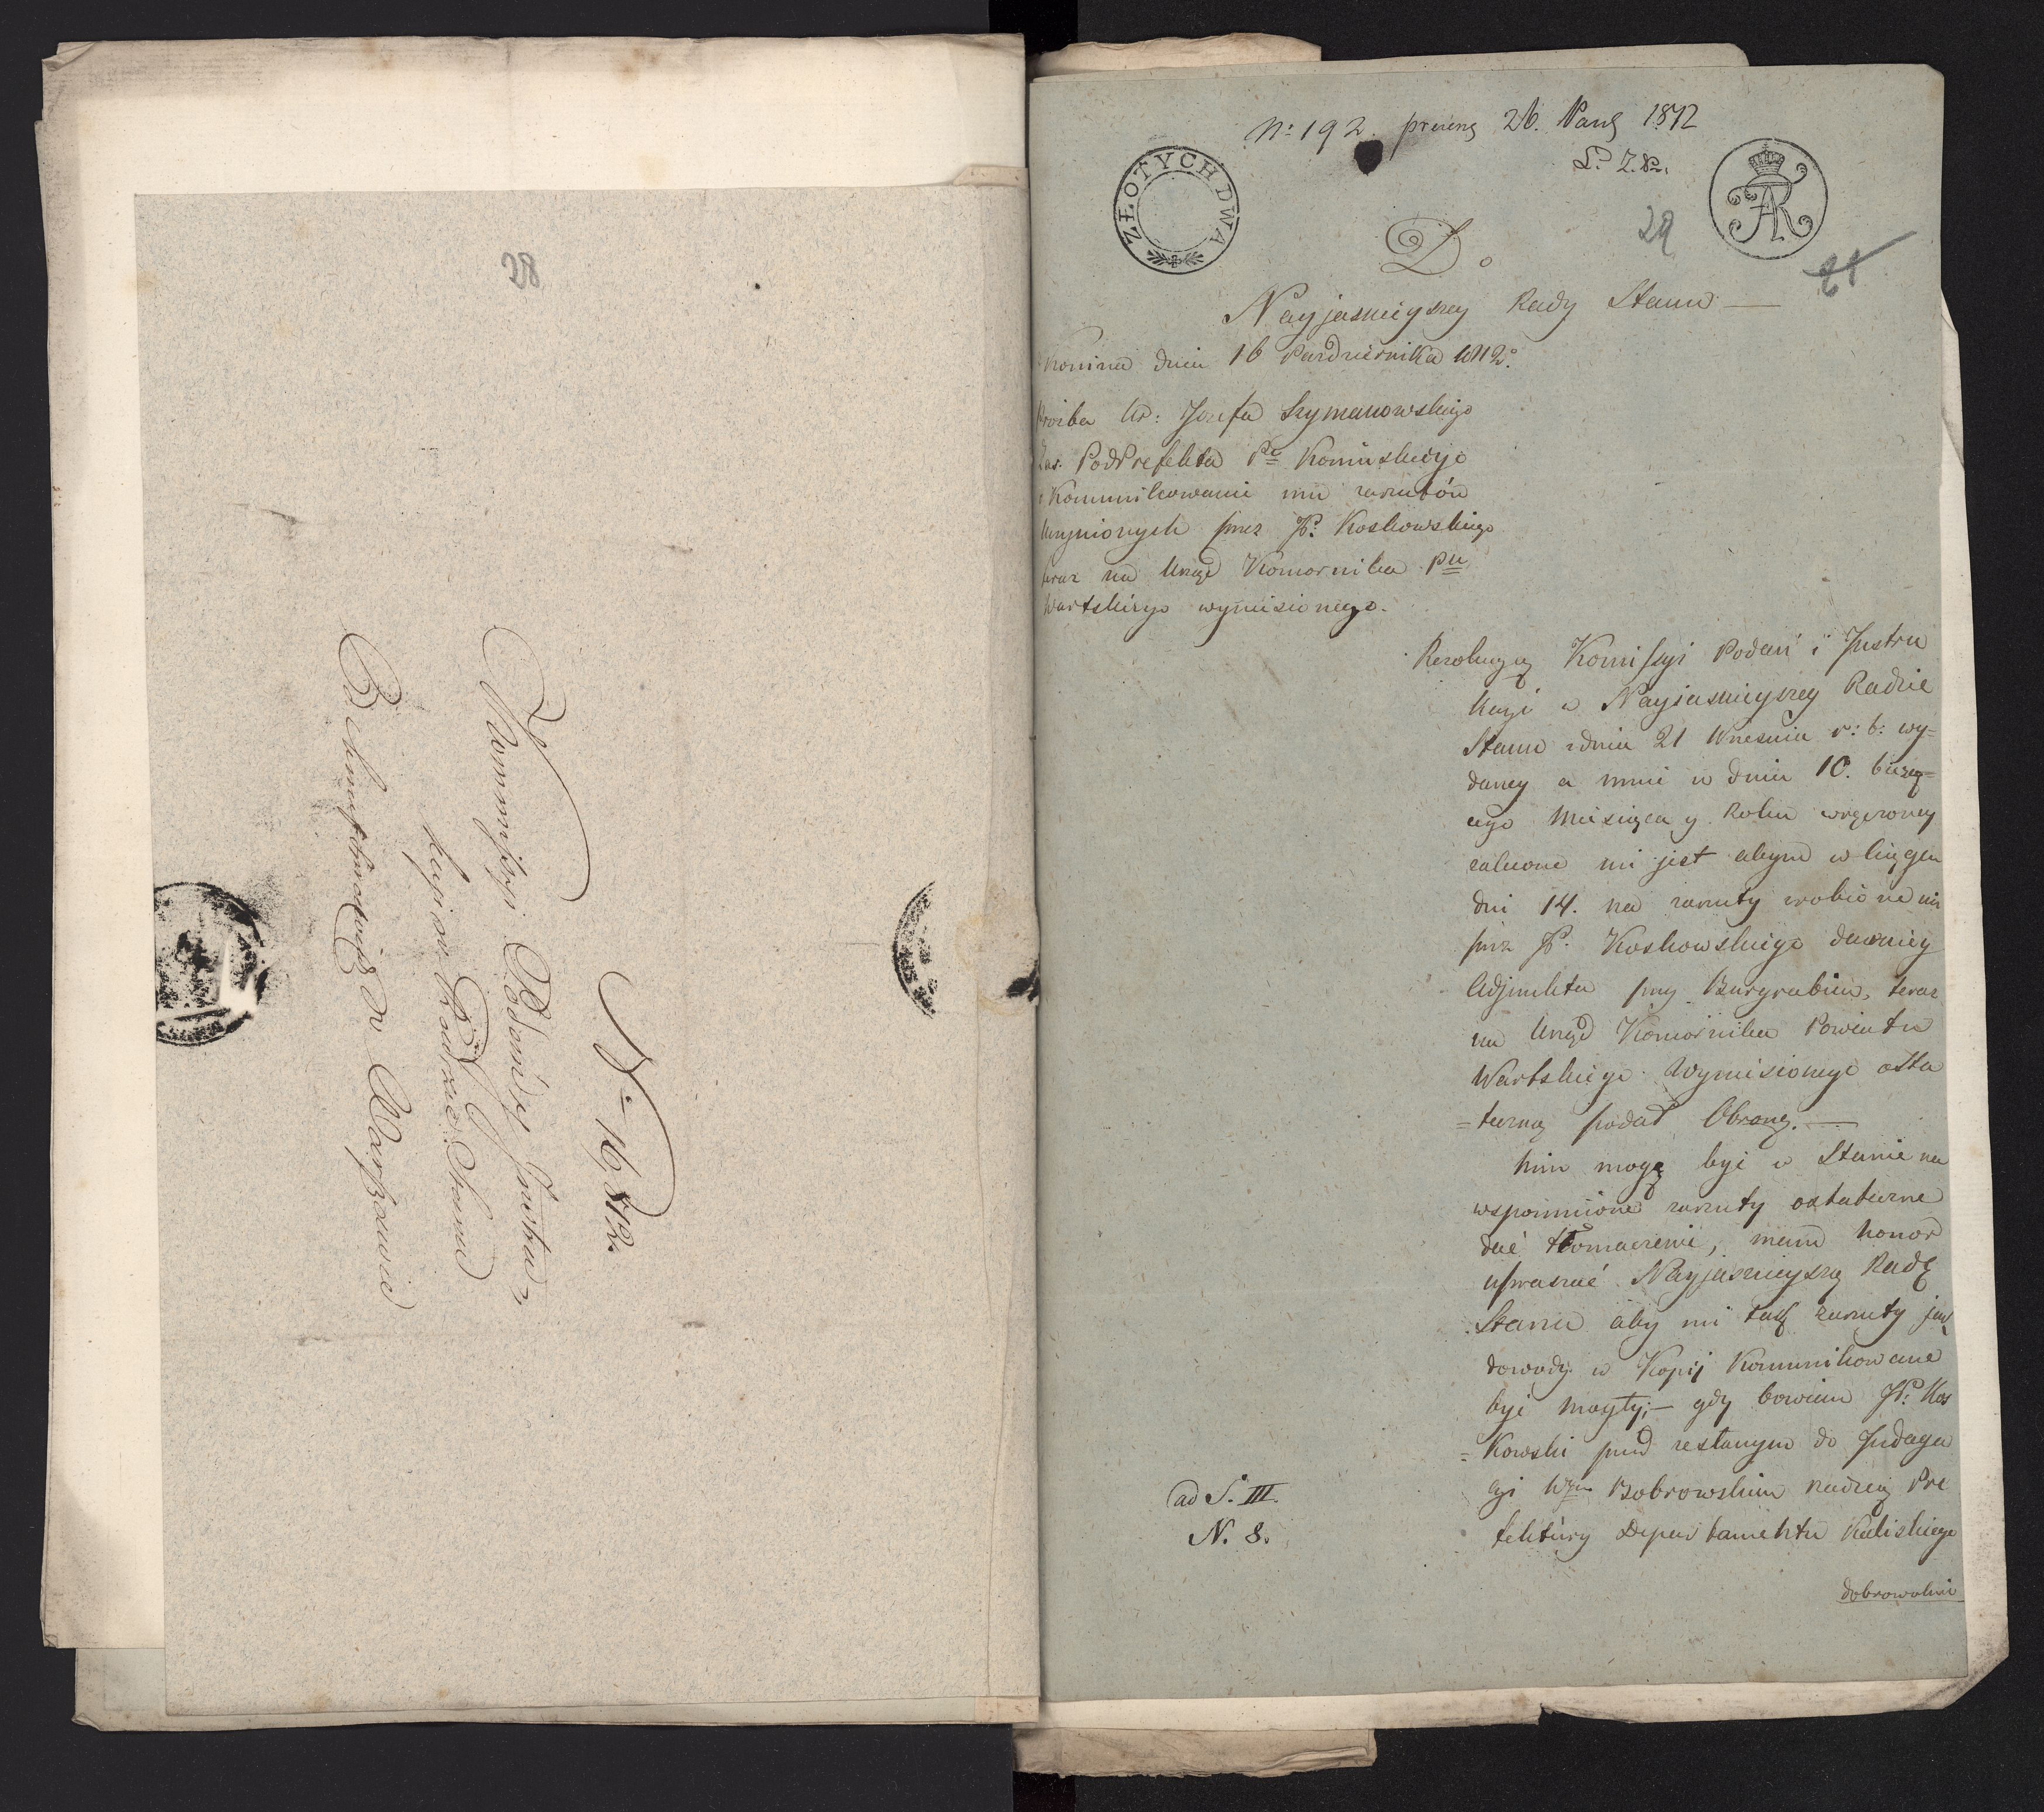 28
Nro 16, 812.
Kommissyi Podań y Instru-
kcyi w Radzie Stanu
w Warszawie
N: 192. prezens 26. Paźd 1812
ZŁOTYCH DWA
29
Do
Nayjasnieyszey Rady Stanu —
Konina dnia 16 Pazdziernika 1812.
Prozba Ur: Jozefa Szymanowskiego
Zas. PodPrefekta Ptu Koninskiego
o Kommunikowanie mu zarzutów
uczynionych przez JP: Koskowskiego
teraz na Urząd Komornika Ptu
Wartskiego wyniesionego.
Rezolucyą Komissyi Podań i Instru
kcyi w Nayiasnieyszey Radzie
Stanu z dnia 21 Wrzesnia r: b: wy=
daney a mnie w dniu 10. bieżą=
cego Miesiąca y Roku wręczoney
zalecone mi jest abym w ciągu
dni 14. na zarzuty zrobione mi
przez JP. Koskowskiego dawniey
Adjunkta przy Burgrabim, teraz
na Urząd Komornika Powiatu
Wartskiego Wyniesionego osta
=teczną podał Obronę. —
Nim mogę być w Stanie na
wspomnione zarzuty ostateczne
dać tłomaczenie, mam honor
upraszać Nayjasnieyszą Radę
Stanu aby mi też zarzuty jak
dowody w Kopij Kommunikowane
być mogły; — gdy bowiem JP: Kos
=kowski przed zesłanym do Indaga
cyi Wym Bobrowskim Radzcą Pre
fektury Departamentu Kaliskiego
dobrowolnie
ad S. III.
N. 8.